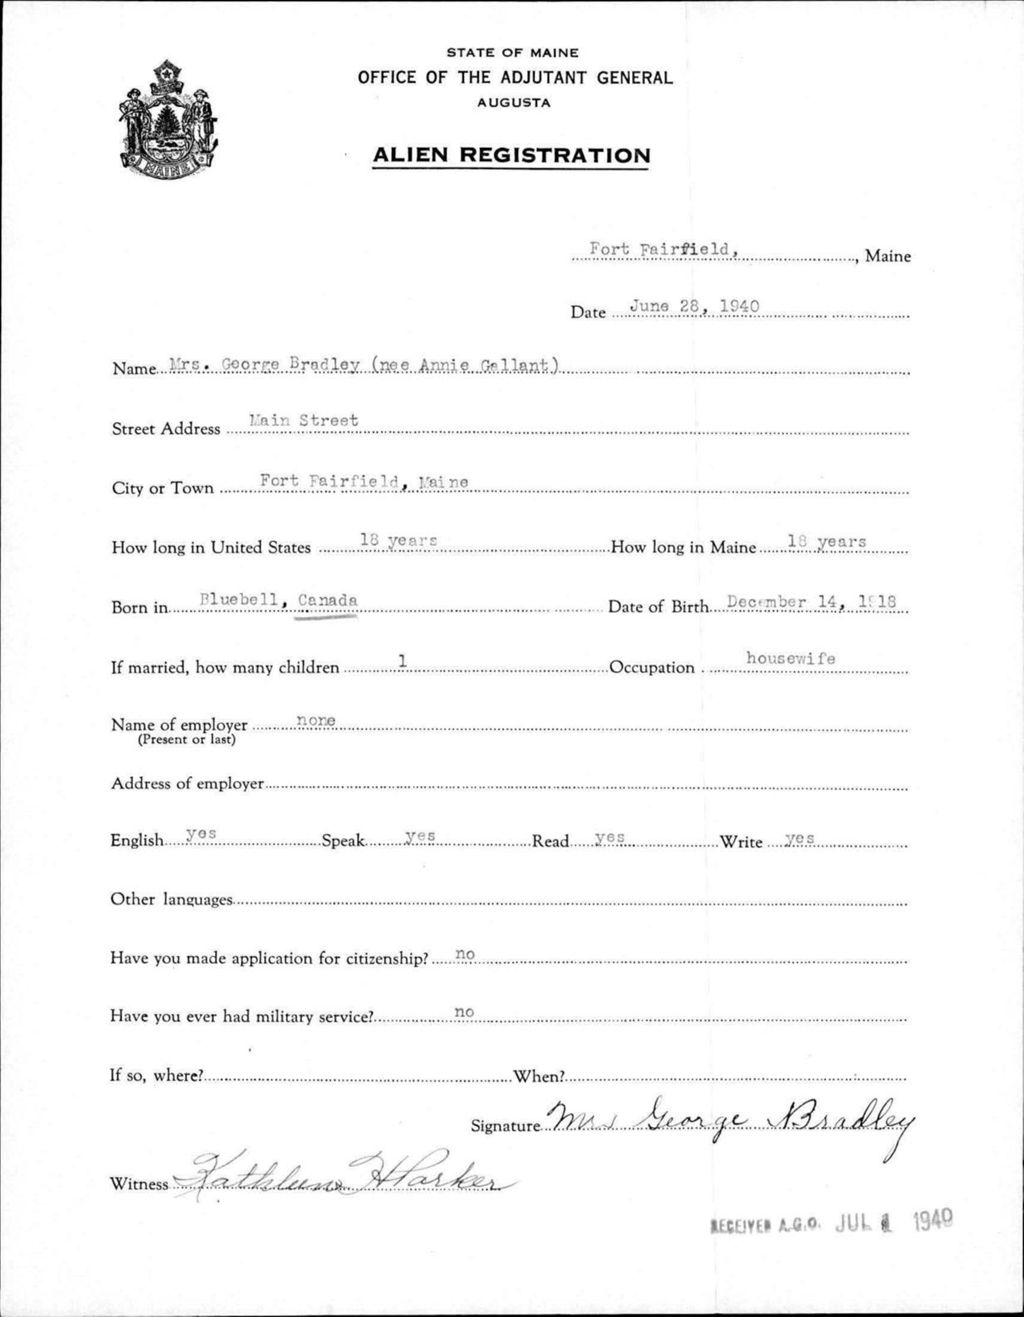 STATE OF MAINE
OFFICE OF THE ADJUTANT GENERAL
AUGUSTA
ALIEN REGISTRATION
MAINE
Fort Fairfield, , Maine
Date June 28, 1940
Name Mrs. George Bradley (nee Annie Gallant)
Street Address Main Street
City or Town Fort Fairfield, Maine
How long in United States 18 years How long in Maine 18 years
Born in Bluebell, Canada Date of Birth December 14, 1918
If married, how many children 1 Occupation housewife
Name of employer none
(Present or last)
Address of employer
English yes Speak yes Read yes Write yes
Other languages
Have you made application for citizenship? no
Have you ever had military service? no
If so, where? When?
Signature Mrs George Bradley
Witness Kathleen
RECEIVED A.G.O. JUL 1 1940